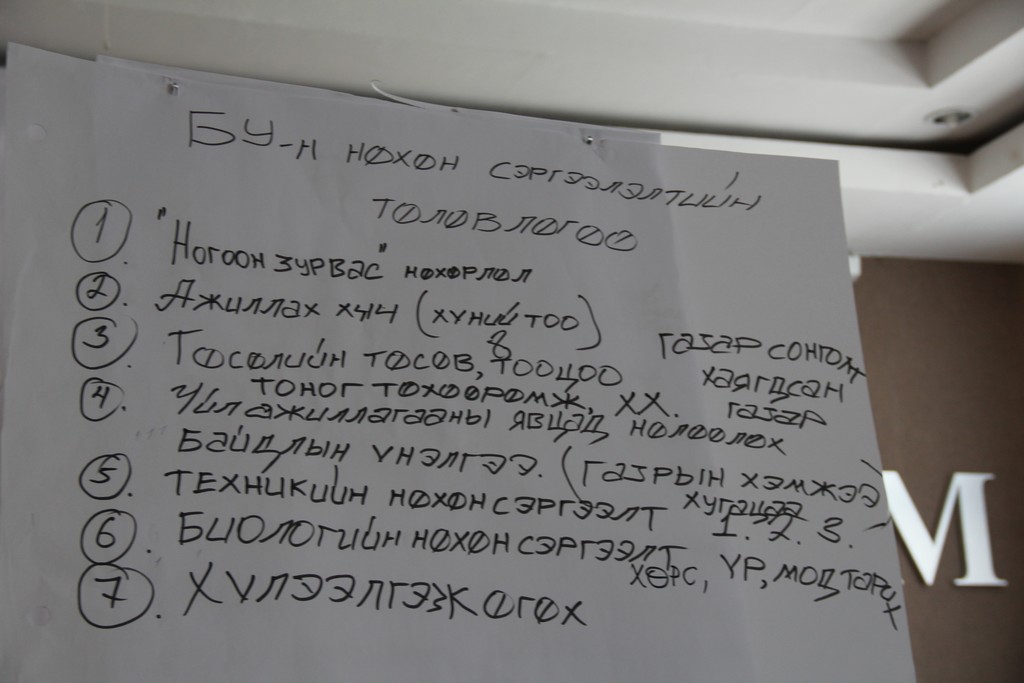 БУ-н нөхөн сэргээлэлтийн
төлөвлөгөө
1. "Ногоон зурвас" нөхөрлөл
2. Ажиллах хүч (хүний тоо)
8
3. Төсөлийн төсөв, тооцоо
тоног төхөөрөмж, ХХ.
газар сонголт
хаягдсан
газар
4. Үйл ажиллагааны явцад нөлөөлөх
байдлын үнэлгээ. (газрын хэмжээ)
хугацаа
5. Техникийн нөхөн сэргээлт 1. 2. 3.
6. Биологийн нөхөн сэргээлт
хөрс, үр, мод тарих
7. Хүлээлгэж өгөх
M